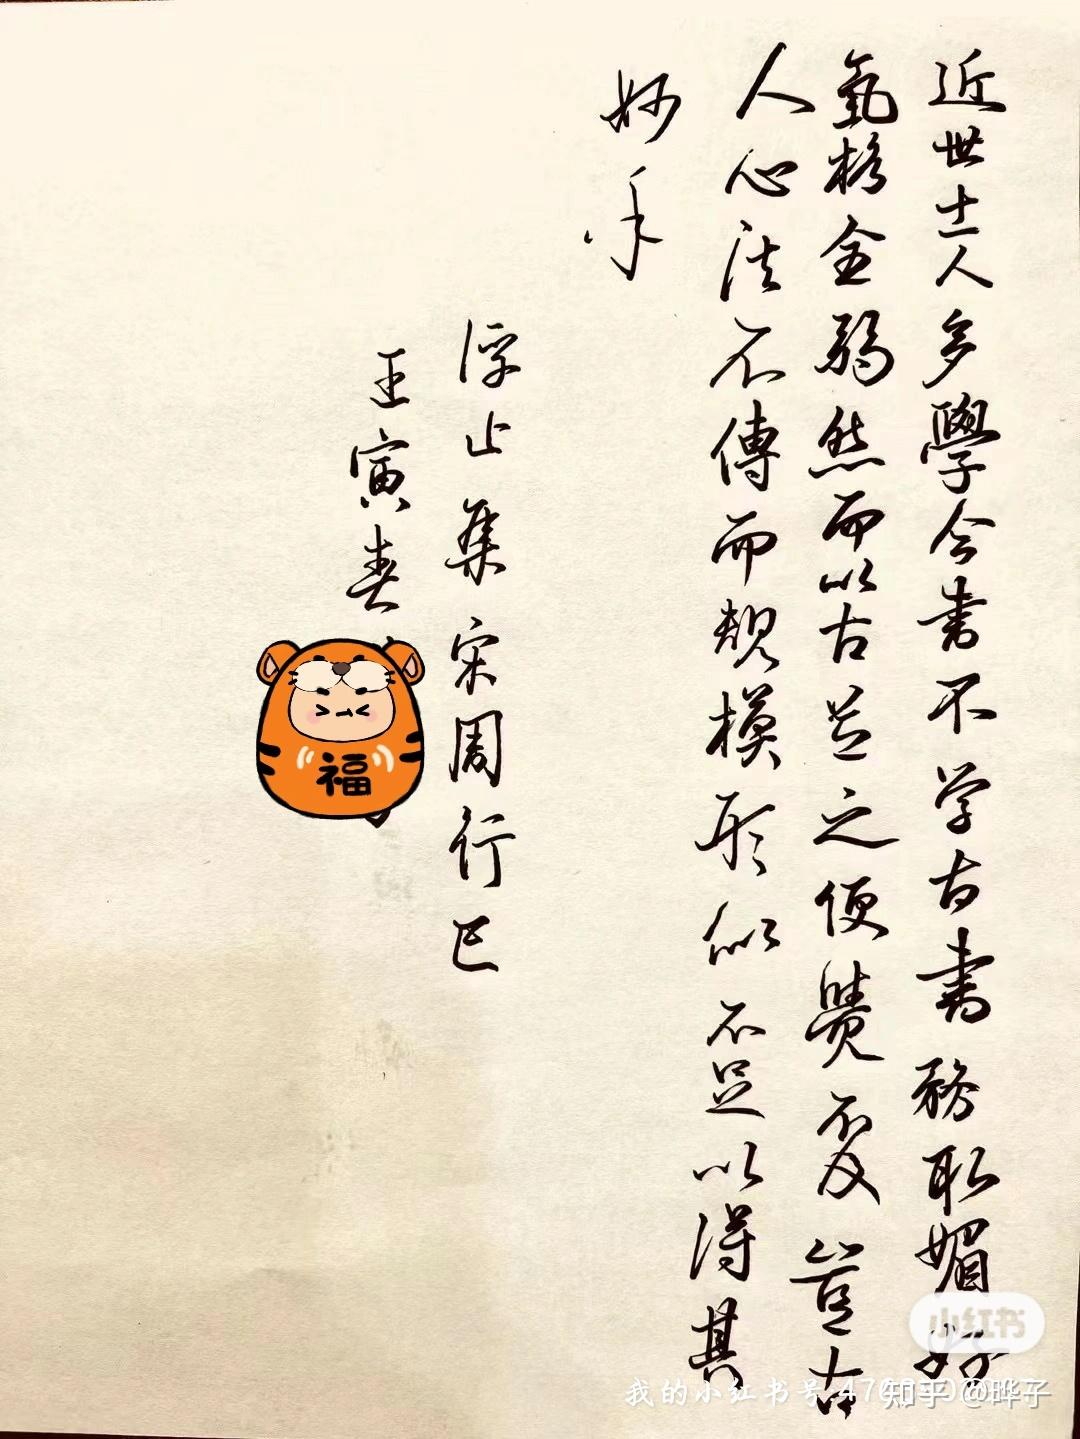 近世士人多學今書不学古書務取媚好
氣格全弱然而以古並之便覺不及豈古
人心法不傳而規模形似不足以得其
妙乎
浮止集宋周行己
壬寅春
福
小红书
我的小红书号
知乎 @晔子